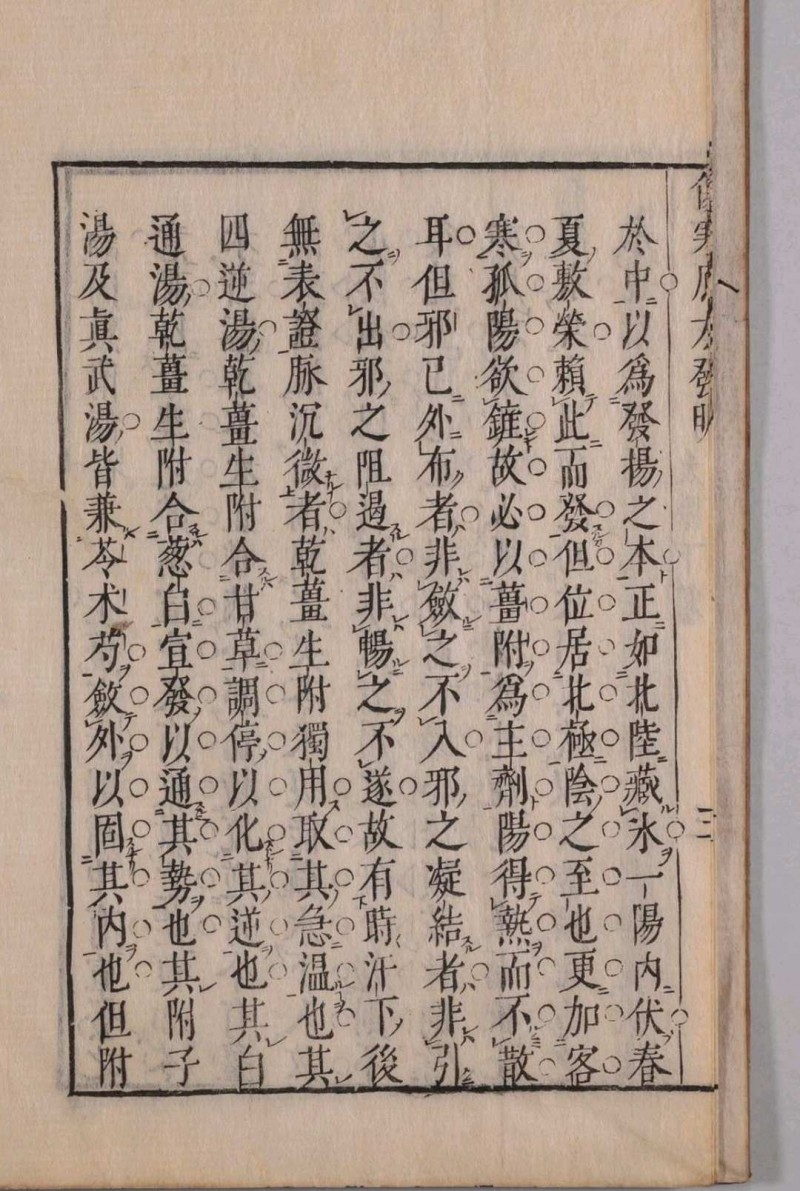 於中以爲發揚之本正如北陸藏氷一陽内伏春
夏敷榮賴此而發但位居北極陰之至也更加客
寒孤陽欲鏣故必以薑附爲主劑陽得熱而不散
耳但邪已外布者非斂之不入邪之凝結者非引
之不出邪之阻過者非暢之不遂故有時汗下後
無表證脉沉微者乾薑生附獨用取其急温也其
四逆湯乾薑生附合甘草調停以化其逆也其白
通湯乾薑生附合葱白宣發以通其勢也其附子
湯及眞武湯皆兼苓术芍斂外以固其内也但附
三